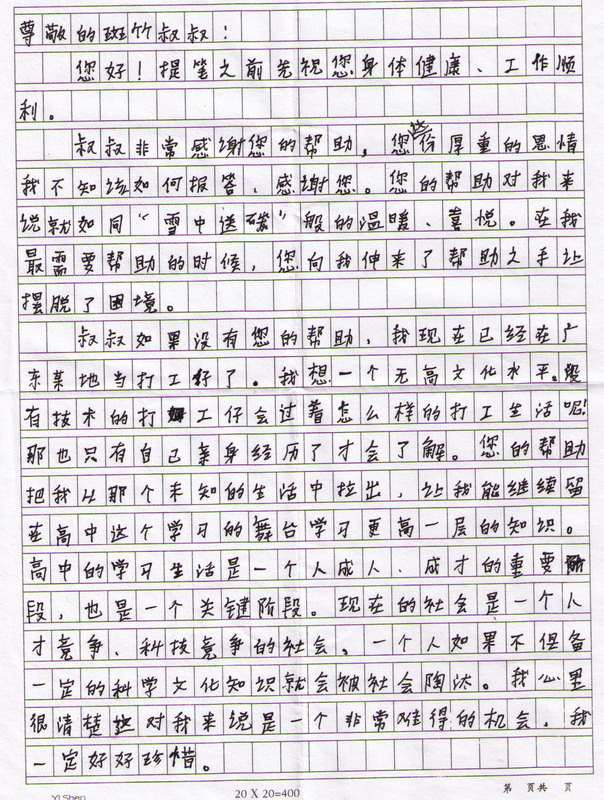 尊敬的斑竹叔叔：
您好！提笔之前先祝您身体健康、工作顺
利。
叔叔非常感谢您的帮助，您这份厚重的恩情
我不知该如何报答、感谢您。您的帮助对我来
说就如同“雪中送碳”般的温暖、喜悦。在我
最需要帮助的时候，您向我伸来了帮助之手让
摆脱了困境。
叔叔如果没有您的帮助，我现在已经在广
东某地当打工仔了。我想一个无高文化水平。没
有技术的打工仔会过着怎么样的打工生活呢！
那也只有自己亲身经历了才会了解。您的帮助
把我从那个未知的生活中拉出，让我能继续留
在高中这个学习的舞台学习更高一层的知识。
高中的学习生活是一个人成人、成才的重要阶
段，也是一个关键阶段。现在的社会是一个人
才竞争、科技竞争的社会。一个人如果不但备
一定的科学文化知识就会被社会陶汰。我心里
很清楚这对我来说是一个非常难得的机会，我
一定好好珍惜。
Yi Shen
20 X 20=400
第 页共 页